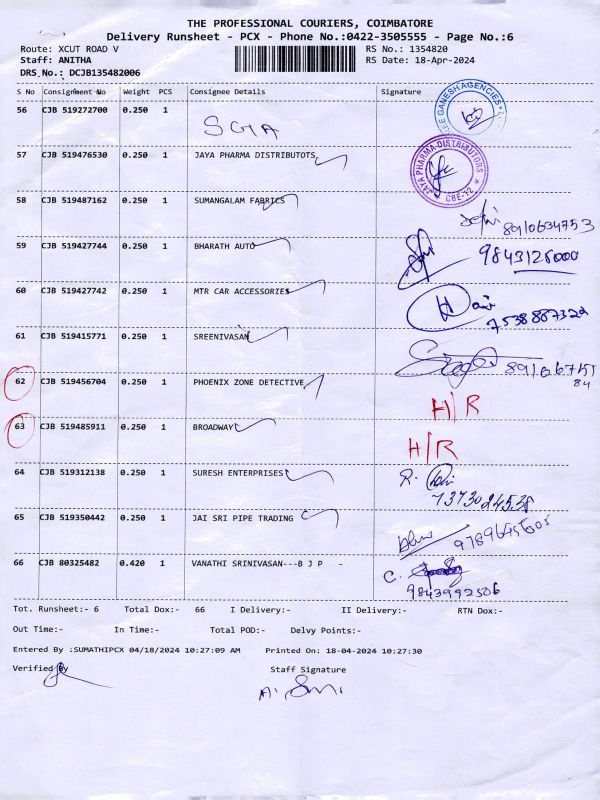 THE PROFESSIONAL COURIERS, COIMBATORE
Delivery Runsheet - PCX - Phone No.:0422-3505555 - Page No.:6
Route: XCUT ROAD V RS No.: 1354820
Staff: ANITHA RS Date: 18-Apr-2024
DRS No.: DCJB135482006
S No Consignment No Weight PCS Consignee Details Signature
56 CJB 519272700 0.250 1 SGA GANESH AGENCIES
57 CJB 519476530 0.250 1 JAYA PHARMA DISTRIBUTOTS JAYA PHARMA DISTRIBUTORS CBE-12
58 CJB 519487162 0.250 1 SUMANGALAM FABRICS 8910634753
59 CJB 519427744 0.250 1 BHARATH AUTO 9843128000
60 CJB 519427742 0.250 1 MTR CAR ACCESSORIES
61 CJB 519415771 0.250 1 SREENIVASAN
62 CJB 519456704 0.250 1 PHOENIX ZONE DETECTIVE H/R
63 CJB 519485911 0.250 1 BROADWAY H/R
64 CJB 519312138 0.250 1 SURESH ENTERPRISES R.
65 CJB 519350442 0.250 1 JAI SRI PIPE TRADING
66 CJB 80325482 0.420 1 VANATHI SRINIVASAN---B J P - C.
9843992506
Tot. Runsheet:- 6 Total Dox:- 66 I Delivery:- II Delivery:- RTN Dox:-
Out Time:- In Time:- Total POD:- Delvy Points:-
Entered By :SUMATHIPCX 04/18/2024 10:27:09 AM Printed On: 18-04-2024 10:27:30
Verified By Staff Signature